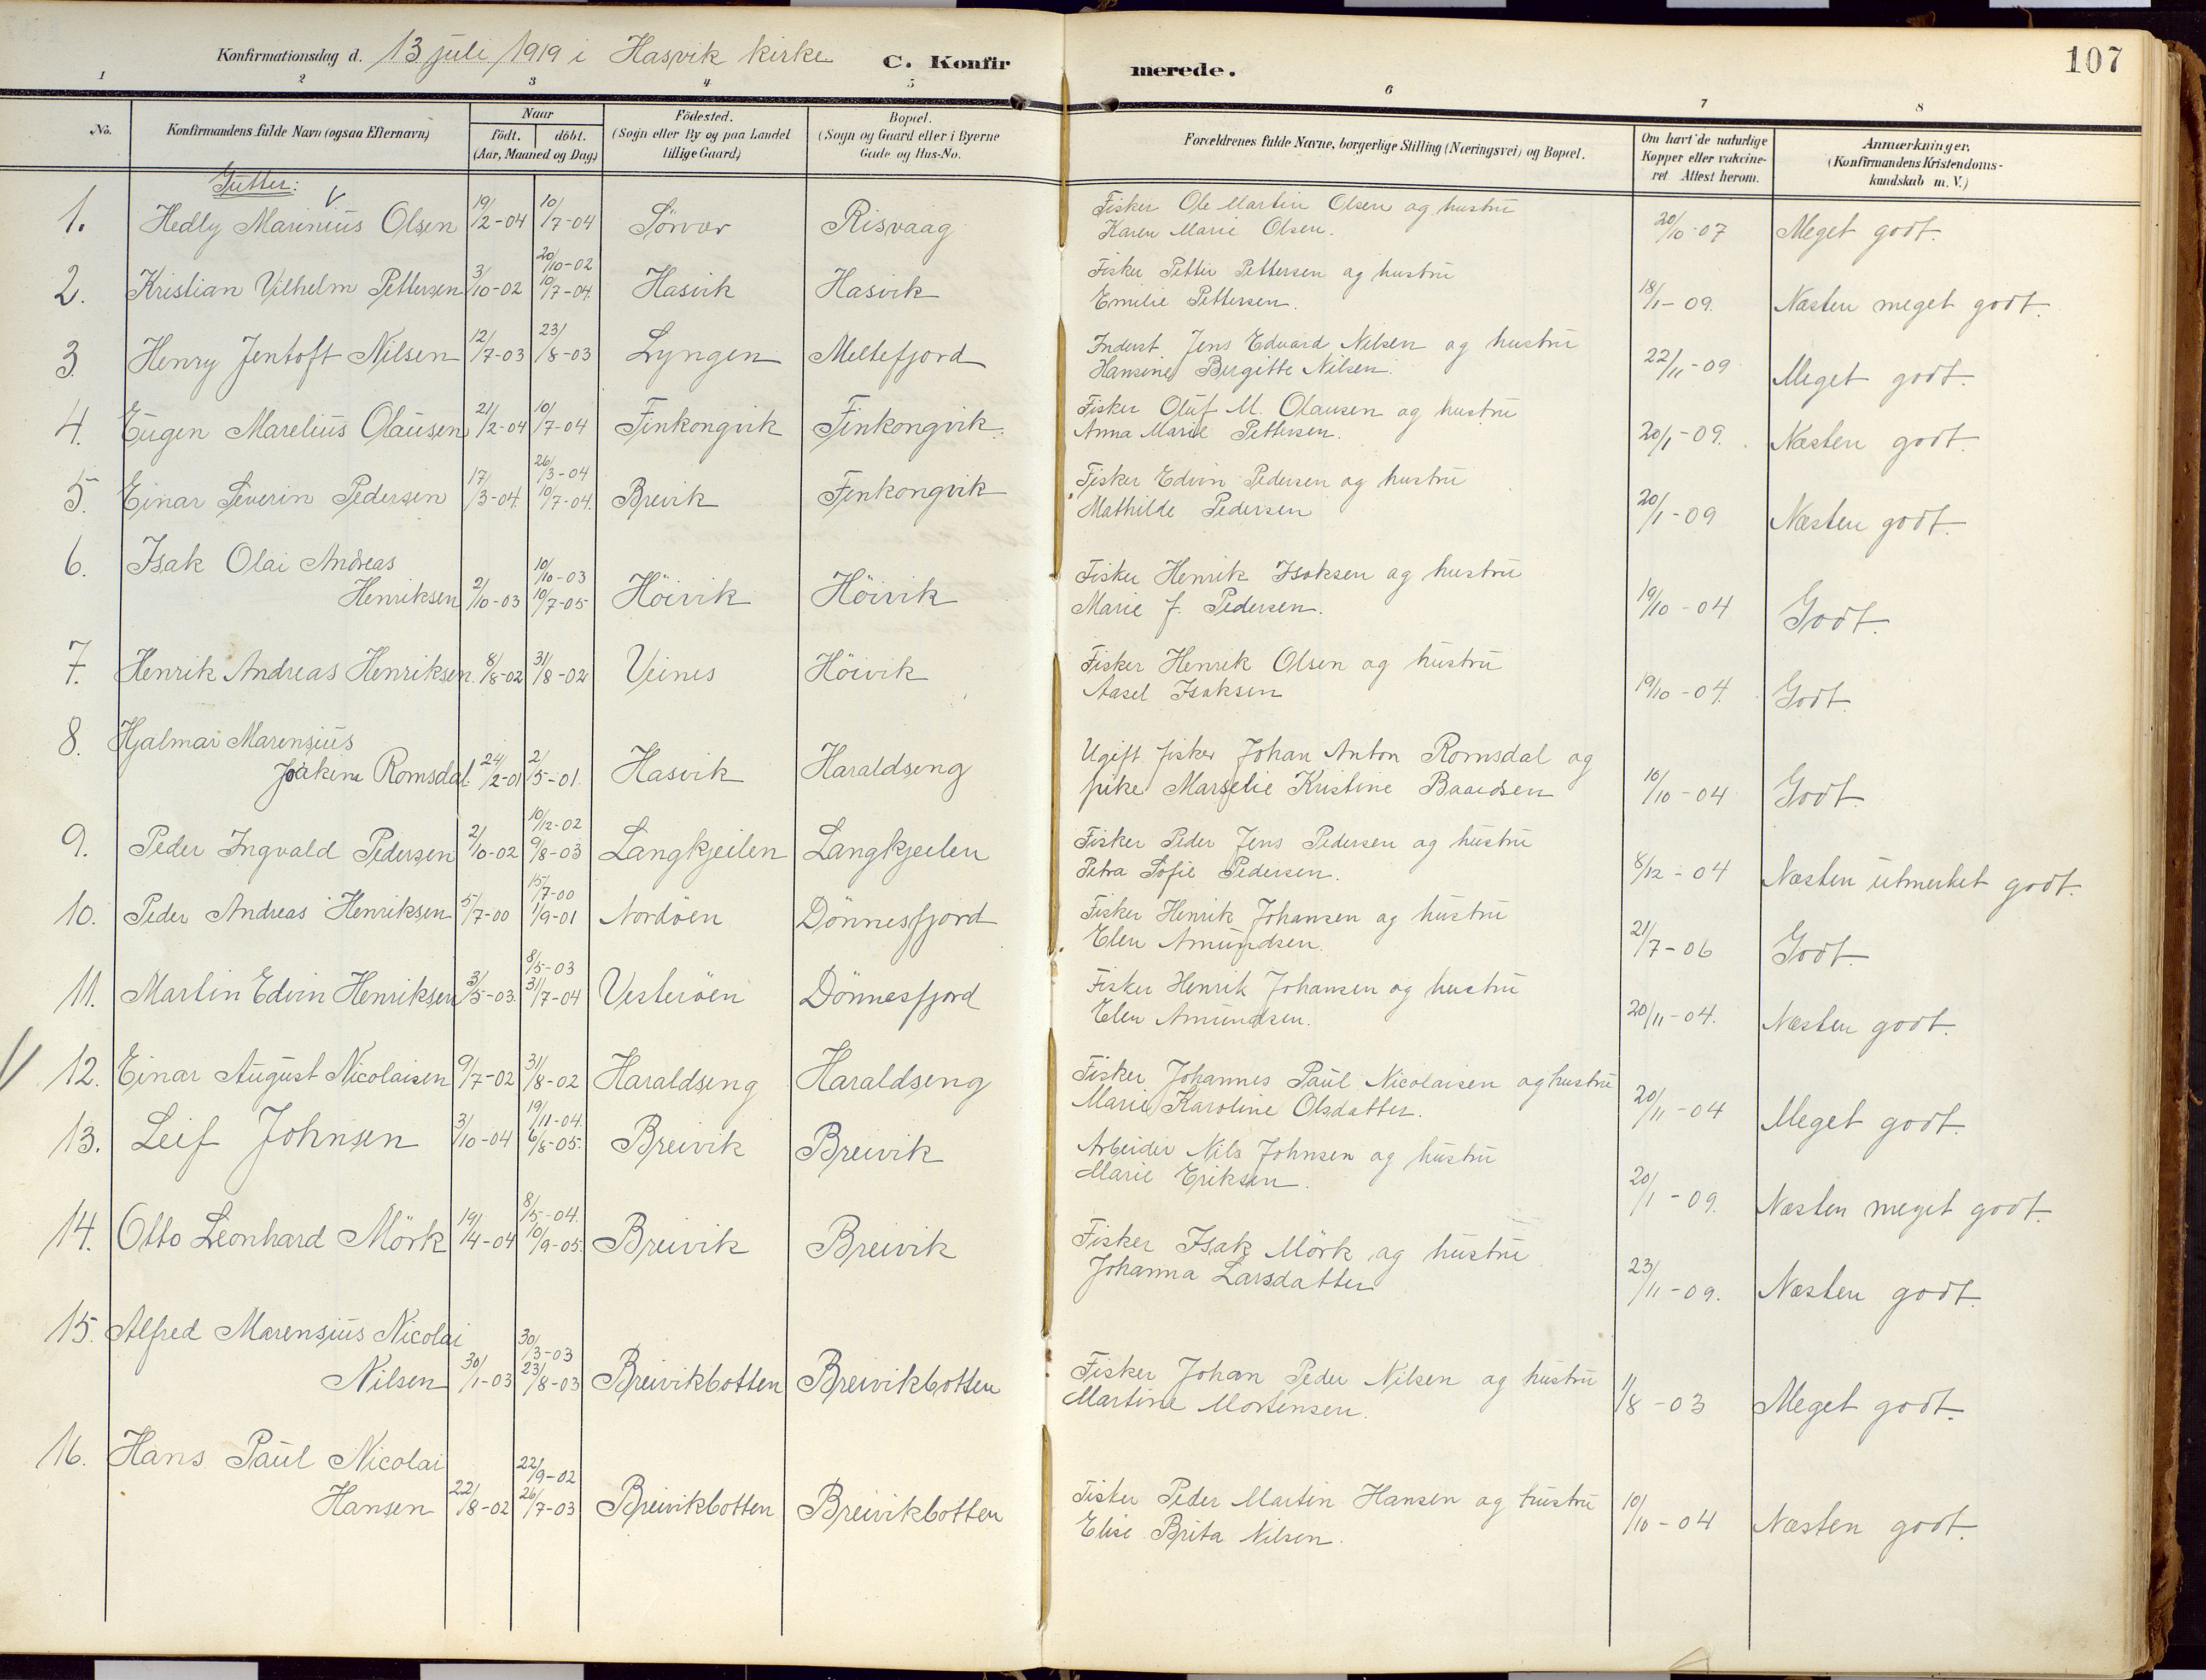 Konfirmationsdag d. 13 juli 1919 i Hasvik kirke C. Konfirmerede. 107
1 2 3 4 5 6 7 8
No. Konfirmandens fulde Navn (ogsaa Efternavn) Naar födt. döbt. (Aar, Maaned og Dag) Födested. (Sogn eller By og paa Landet tillige Gaard) Bopæl. (Sogn og Gaard eller i Byerne Gade og Hus-No. Forældrenes fulde Navne, borgerlige Stilling (Næringsvei) og Bopæl. Om havt de naturlige Kopper eller vakcineret Attest herom. Anmærkninger. (Konfirmandens Kristendomskundskab m. V.)
Gutter:
1. Hedly Marinius Olsen 19/2-04 10/7-04 Sörvær Risvaag Fisker Ole Martin Olsen og hustru 20/10-07 Meget godt.
Karen Marie Olsen.
20/10-02
2. Kristian Vilhelm Pettersen 3/10-02 10/7-04. Hasvik Hasvik Fisker Petter Pettersen og hustru 18/1-09. Næsten meget godt.
Emilie Pettersen.
3. Henry Jentoft Nilsen 12/7-03 23/8-03 Lyngen Meltefjord Inderst Jens Edvard Nilsen og hustru 22/11-09 Meget godt.
Hansine Birgitte Nilsen.
4. Eugen Marelius Olausen 21/2-04 10/7-04 Finkongvik Finkongvik. Fisker Oluf M. Olausen og hustru 20/1-09. Næsten godt.
Anna Marie Pettersen.
26/3-04
5. Einar Severin Pedersen 17/3-04. 10/7-04. Breivik Finkongvik Fisker Edvin Pedersen og hustru 20/1-09 Næsten godt.
Mathilde Pedersen
6. Isak Olai Andreas 10/10-03
Henriksen 2/10-03 10/7-05 Höivik Höivik Fisker Henrik Isaksen og hustru 19/10-04 Godt.
Marie J. Pedersen.
7. Henrik Andreas Henriksen. 8/8-02 31/8-02 Veines Höivik Fisker Henrik Olsen og hustru 19/10-04. Godt.
Aasel Isaksen
8. Hjalmar Marensius
Joakim Romsdal 24/2-01 2/5-01. Hasvik Haraldseng Ugift fisker Johan Anton Romsdal og 10/10-04 Godt.
pike Marselie Kristine Baardsen
10/12-02
9. Peder Ingvald Pedersen 2/10-02 9/8-03 Langkjeilen Langkjeilen Fisker Peder Jens Pedersen og hustru 8/12-04 Næsten utmerket godt.
Petra Sofie Pedersen.
15/7-00
10. Peder Andreas Henriksen 5/7-00 1/9-01 Nordöen Dönnesfjord Fisker Henrik Johansen og hustru 21/7-06 Godt.
Elen Amundsen.
8/5-03
11. Martin Edvin Henriksen 3/5-03. 31/7-04 Vesteröen Dönnesfjord Fisker Henrik Johansen og hustru 20/11-04. Næsten godt.
Elen Amundsen.
12. Einar August Nicolaisen 9/7-02 31/8-02 Haraldseng Haraldseng Fisker Johannes Paul Nicolaisen og hustru 20/11-04 Meget godt.
Marie Karoline Olsdatter.
19/11-04.
13. Leif Johnsen 3/10-04 6/8-05. Breivik Breivik Arbeider Nils Johnsen og hustru 20/1-09. Næsten meget godt.
Marie Eriksen.
8/5-04.
14. Otto Leonhard Mörk 19/4-04 10/9-05. Breivik Breivik Fisker Isak Mörk og hustru 23/11-09. Næsten godt.
Johanna Larsdatter
15. Alfred Marensius Nicolai 30/3-03
Nilsen 30/1-03 23/8-03 Breivikbotten Breivikbotten Fisker Johan Peder Nilsen og hustru 1/8-03 Meget godt.
Martine Mortensen.
16. Hans Paul Nicolai 22/9-02
Hansen 22/8-02 26/7-03 Breivikbotten Breivikbotten Fisker Peder Martin Hansen og hustru 10/10-04 Næsten godt.
Elise Brita Nilsen.